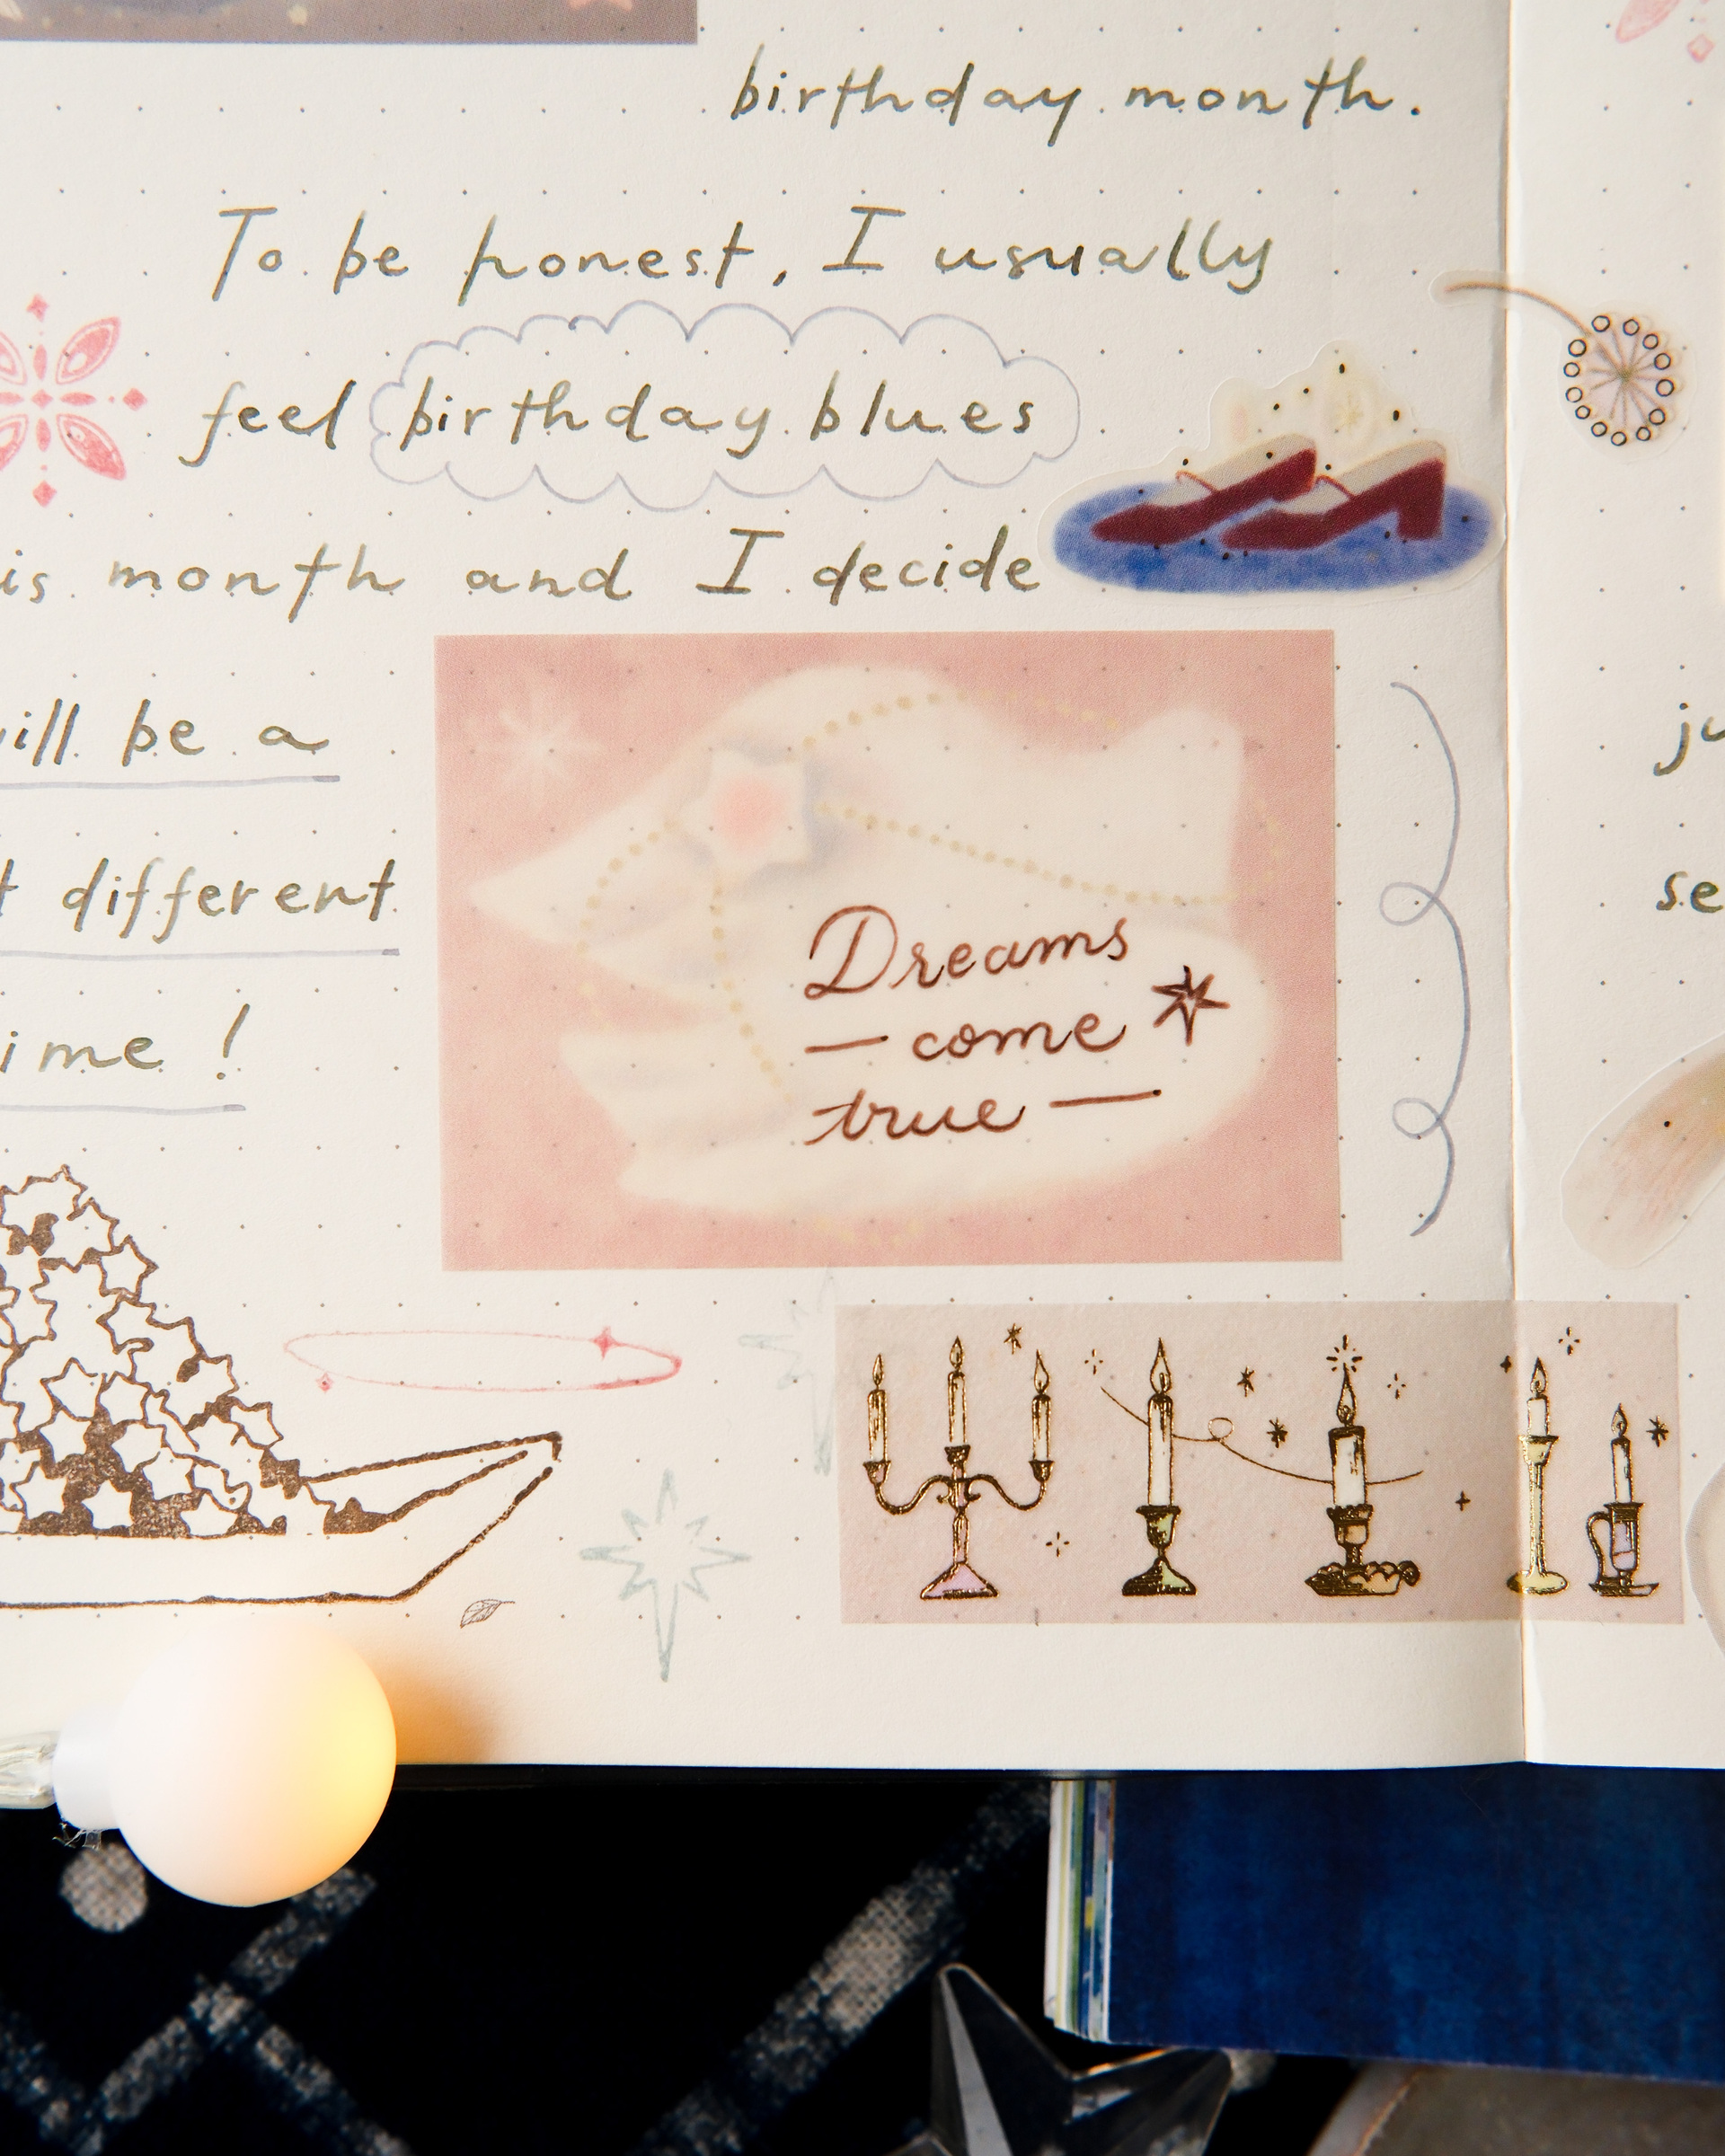 birthday month.
To be honest, I usually
feel birthday blues
month and I decide
be a
different
!
Dreams
— come
true —